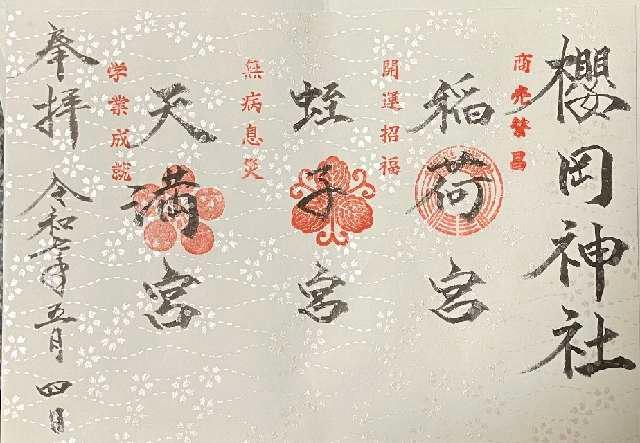 櫻岡神社
商売繁昌
稲荷宮
開運招福
蛭子宮
無病息災
天満宮
学業成就
奉拝
令和七年五月四日